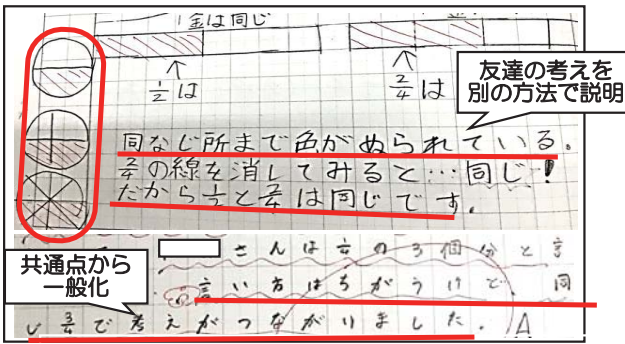 金は同じ
1/2は
2/4は
友達の考えを
別の方法で説明
同なじ所まで色がぬられている。
2/4の線を消してみると…同じ!
だから1/2と2/4は同じです。
共通点から
一般化
さんは1/4の3個分と言
言い方はちがうけど 同
じ3/4で考えがつながりました。A